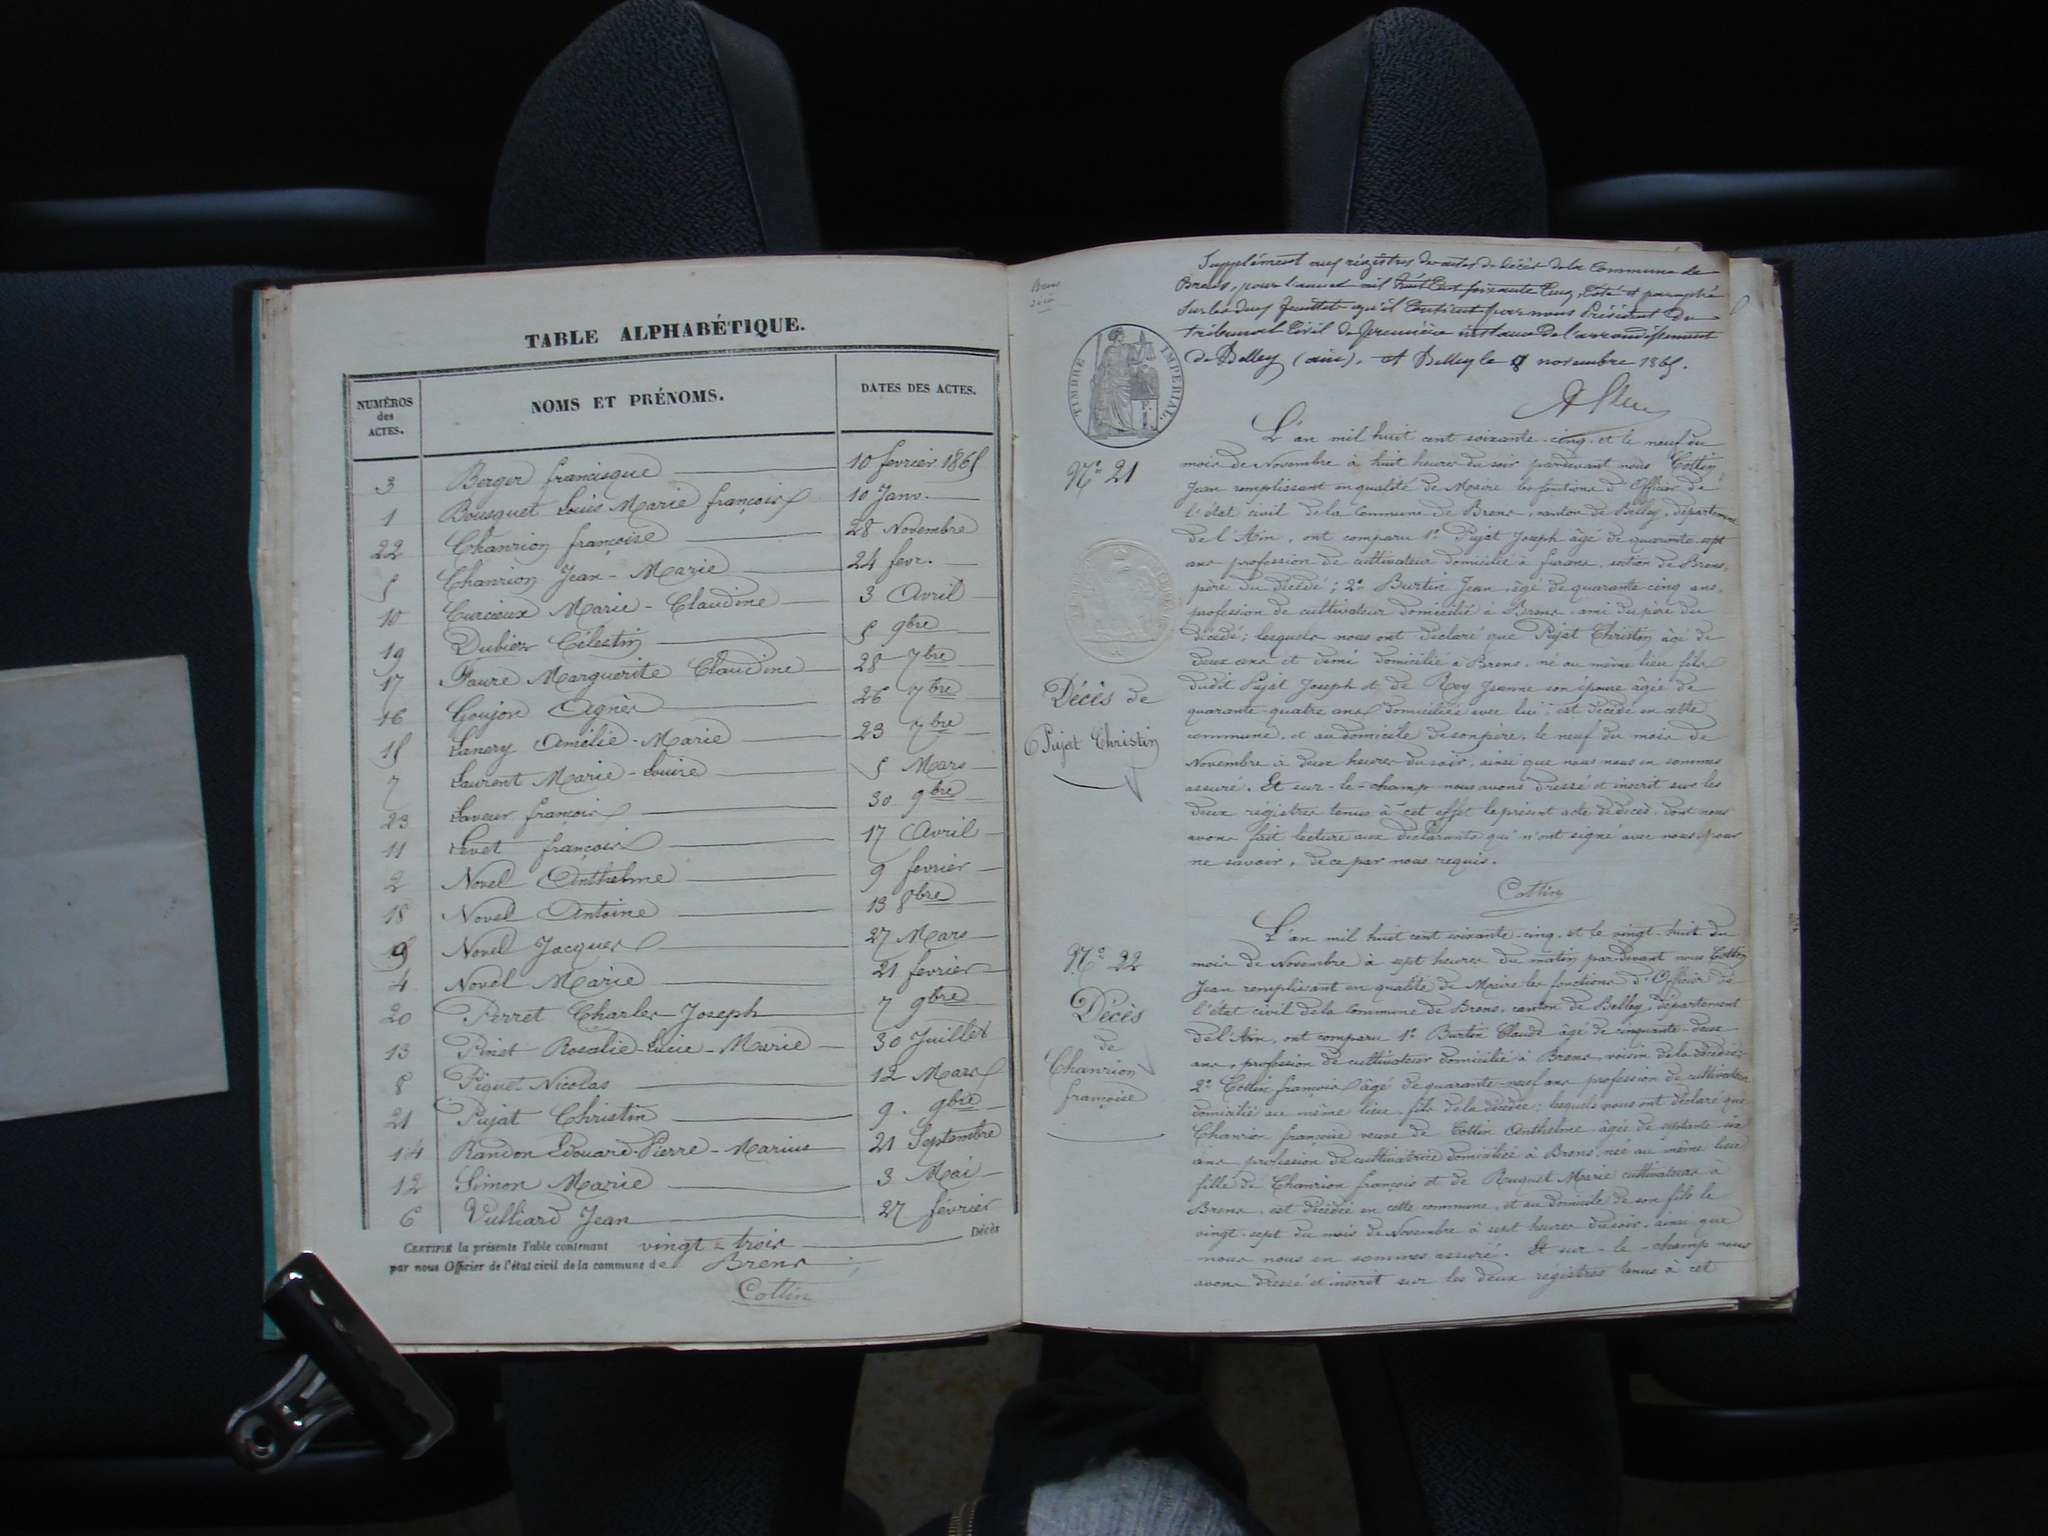 TABLE ALPHABÉTIQUE.
NUMÉROS des ACTES.
NOMS ET PRÉNOMS.
DATES DES ACTES.
3 Berger francisque 10 fevrier 1865
1 Bousquet Louis Marie françois 10 Janv.
22 Chanrion françoise 28 Novembre
5 Chanrion Jean-Marie 24 fevr.
10 Curieux Marie-Claudine 3 Avril
19 Dubier Célestin 5 9bre
17 Faure Marguerite Claudine 28 7bre
16 Goujon Agnès 26 7bre
15 Lanery Amélie-Marie 23 7bre
7 Laurent Marie-Louise 5 Mars
23 Laveur françois 30 9bre
11 Levet françois 17 Avril
2 Novel Anthelme 9 fevrier
18 Novel Antoine 13 8bre
9 Novel Jacques 27 Mars
4 Novel Marie 21 fevrier
20 Perret Charles-Joseph 7 9bre
13 Pinet Rosalie-Lucie-Marie 30 Juillet
8 Piquet Nicolas 12 Mars
21 Pujat Christin 9. 9bre
14 Randon Edouard-Pierre-Marius 21 Septembre
12 Simon Marie 3 Mai
6 Vulliard Jean 27 février
CERTIFIÉ la présente Table contenant vingt-trois Décès
par nous Officier de l'état civil de la commune de Brens
Cottin
Brens
décès
Supplément aux régistres des actes de décès de la Commune de
Brens, pour l'année mil huit Cent soixante Cinq, Coté et paraphé
sur les deux feuillets qu'il Contient par nous Président du
tribunal Civil de première instance de l'arrondissement
de Belley (ain). A Belley le 8 novembre 1865.
TIMBRE IMPÉRIAL.
N° 21
Décès de
Pujat Christin
L'an mil huit cent soixante-cinq, et le neuf du
mois de Novembre à huit heures du soir pardevant nous Cottin
Jean remplissant en qualité de Maire les fonctions d'Officier de
l'état civil de la Commune de Brens, canton de Belley, département
de l'Ain, ont comparu 1° Pujat Joseph âgé de quarante-sept
ans profession de cultivateur domicilié à furans, section de Brens,
père du décédé; 2° Burtin Jean, âgé de quarante-cinq ans,
profession de cultivateur domicilié à Brens, ami du père du
décédé; lesquels nous ont déclaré que Pujat Christin âgé de
deux ans et demi domicilié à Brens, né au même lieu fils
dudit Pujat Joseph et de Rey Jeanne son épouse âgée de
quarante-quatre ans domiciliés avec lui; est décédé en cette
commune, et au domicile de son père, le neuf du mois de
Novembre à deux heures du soir, ainsi que nous nous en sommes
assuré. Et sur-le-champ nous avons dressé et inscrit sur les
deux régistres tenus à cet effet le présent acte de décès, dont nous
avons fait lecture aux déclarants qui n'ont signé avec nous pour
ne savoir, de ce par nous requis.
Cottin
N° 22
Décès
de
Chanrion
françoise
L'an mil huit cent soixante-cinq, et le vingt-huit du
mois de Novembre à sept heures du matin par devant nous Cottin
Jean remplissant en qualité de Maire les fonctions d'Officier de
l'état civil de la Commune de Brens, canton de Belley, département
de l'Ain, ont comparu 1° Burtin Claude âgé de cinquante-deux
ans, profession de cultivateur domicilié à Brens, voisin de la décédée;
2° Cottin françois âgé de quarante-neuf ans profession de cultivateur
domicilié au même lieu, fils de la décédée; lesquels nous ont déclaré que
Chanrion françoise veuve de Cottin Anthelme âgée de septante-six
ans profession de cultivatrice domiciliée à Brens, née au même lieu
fille de Chanrion françois et de Ruquet Marie cultivateurs à
Brens, est décédée en cette commune, et au domicile de son fils le
vingt-sept du mois de Novembre à sept heures du soir, ainsi que
nous nous en sommes assuré. Et sur-le-champ nous
avons dressé et inscrit sur les deux régistres tenus à cet